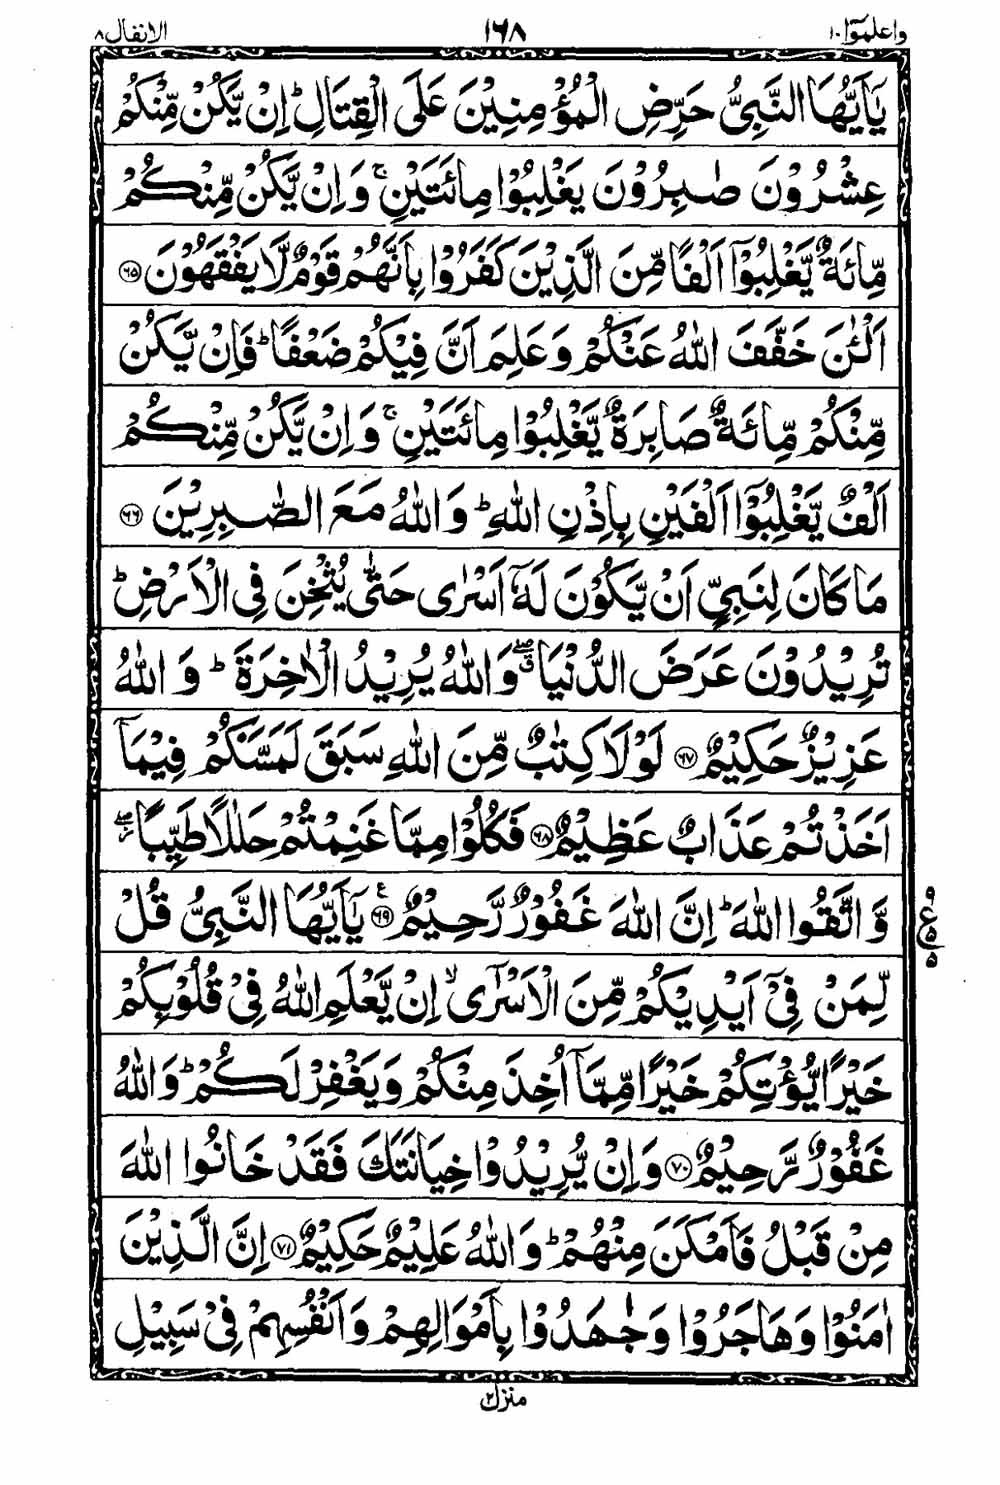 واعلموٓا ١٠ ١٦٨ الانفال ٨
يٰۤاَيُّهَا النَّبِيُّ حَرِّضِ الْمُؤْمِنِيْنَ عَلَى الْقِتَالِ ؕ اِنْ يَّكُنْ مِّنْكُمْ
عِشْرُوْنَ صٰبِرُوْنَ يَغْلِبُوْا مِائَتَيْنِ ۚ وَاِنْ يَّكُنْ مِّنْكُمْ
مِّائَةٌ يَّغْلِبُوْۤا اَلْفًا مِّنَ الَّذِيْنَ كَفَرُوْا بِاَنَّهُمْ قَوْمٌ لَّا يَفْقَهُوْنَ ﴿٦٥﴾
اَلْـٰٔنَ خَفَّفَ اللّٰهُ عَنْكُمْ وَعَلِمَ اَنَّ فِيْكُمْ ضَعْفًا ؕ فَاِنْ يَّكُنْ
مِّنْكُمْ مِّائَةٌ صَابِرَةٌ يَّغْلِبُوْا مِائَتَيْنِ ۚ وَاِنْ يَّكُنْ مِّنْكُمْ
اَلْفٌ يَّغْلِبُوْۤا اَلْفَيْنِ بِاِذْنِ اللّٰهِ ؕ وَاللّٰهُ مَعَ الصّٰبِرِيْنَ ﴿٦٦﴾
مَا كَانَ لِنَبِيٍّ اَنْ يَّكُوْنَ لَهٗۤ اَسْرٰى حَتّٰى يُثْخِنَ فِى الْاَرْضِ ؕ
تُرِيْدُوْنَ عَرَضَ الدُّنْيَا ۖق وَاللّٰهُ يُرِيْدُ الْاٰخِرَةَ ؕ وَاللّٰهُ
عَزِيْزٌ حَكِيْمٌ ﴿٦٧﴾ لَوْلَا كِتٰبٌ مِّنَ اللّٰهِ سَبَقَ لَمَسَّكُمْ فِيْمَاۤ
اَخَذْتُمْ عَذَابٌ عَظِيْمٌ ﴿٦٨﴾ فَكُلُوْا مِمَّا غَنِمْتُمْ حَلٰلًا طَيِّبًا ۖز
وَّاتَّقُوا اللّٰهَ ؕ اِنَّ اللّٰهَ غَفُوْرٌ رَّحِيْمٌ ﴿٦٩﴾ ع يٰۤاَيُّهَا النَّبِيُّ قُلْ
٩ ع ٥ ٥
لِّمَنْ فِيْۤ اَيْدِيْكُمْ مِّنَ الْاَسْرٰۤى ۙ اِنْ يَّعْلَمِ اللّٰهُ فِيْ قُلُوْبِكُمْ
خَيْرًا يُّؤْتِكُمْ خَيْرًا مِّمَّاۤ اُخِذَ مِنْكُمْ وَيَغْفِرْ لَكُمْ ؕ وَاللّٰهُ
غَفُوْرٌ رَّحِيْمٌ ﴿٧٠﴾ وَاِنْ يُّرِيْدُوْا خِيَانَتَكَ فَقَدْ خَانُوا اللّٰهَ
مِنْ قَبْلُ فَاَمْكَنَ مِنْهُمْ ؕ وَاللّٰهُ عَلِيْمٌ حَكِيْمٌ ﴿٧١﴾ اِنَّ الَّذِيْنَ
اٰمَنُوْا وَهَاجَرُوْا وَجٰهَدُوْا بِاَمْوَالِهِمْ وَاَنْفُسِهِمْ فِيْ سَبِيْلِ
منزل ٢